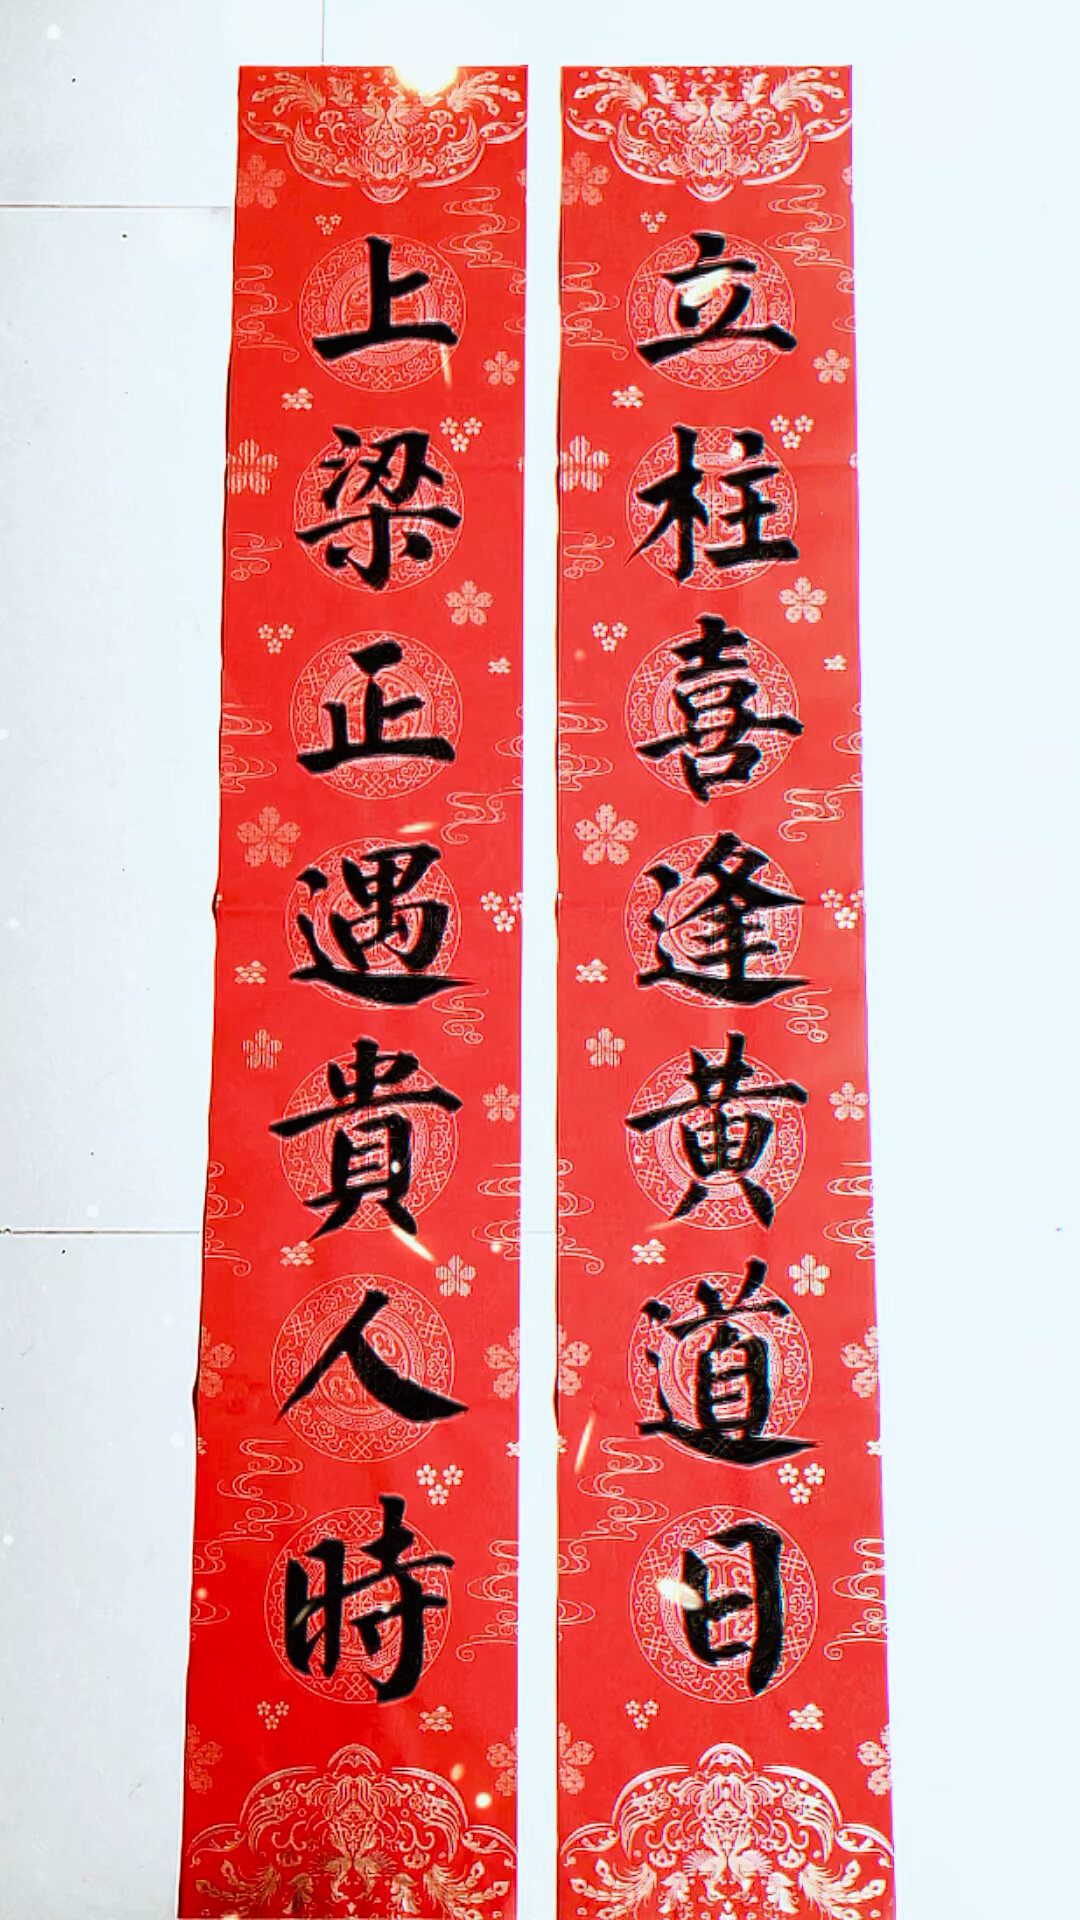 立柱喜逢黄道日
上梁正遇貴人時